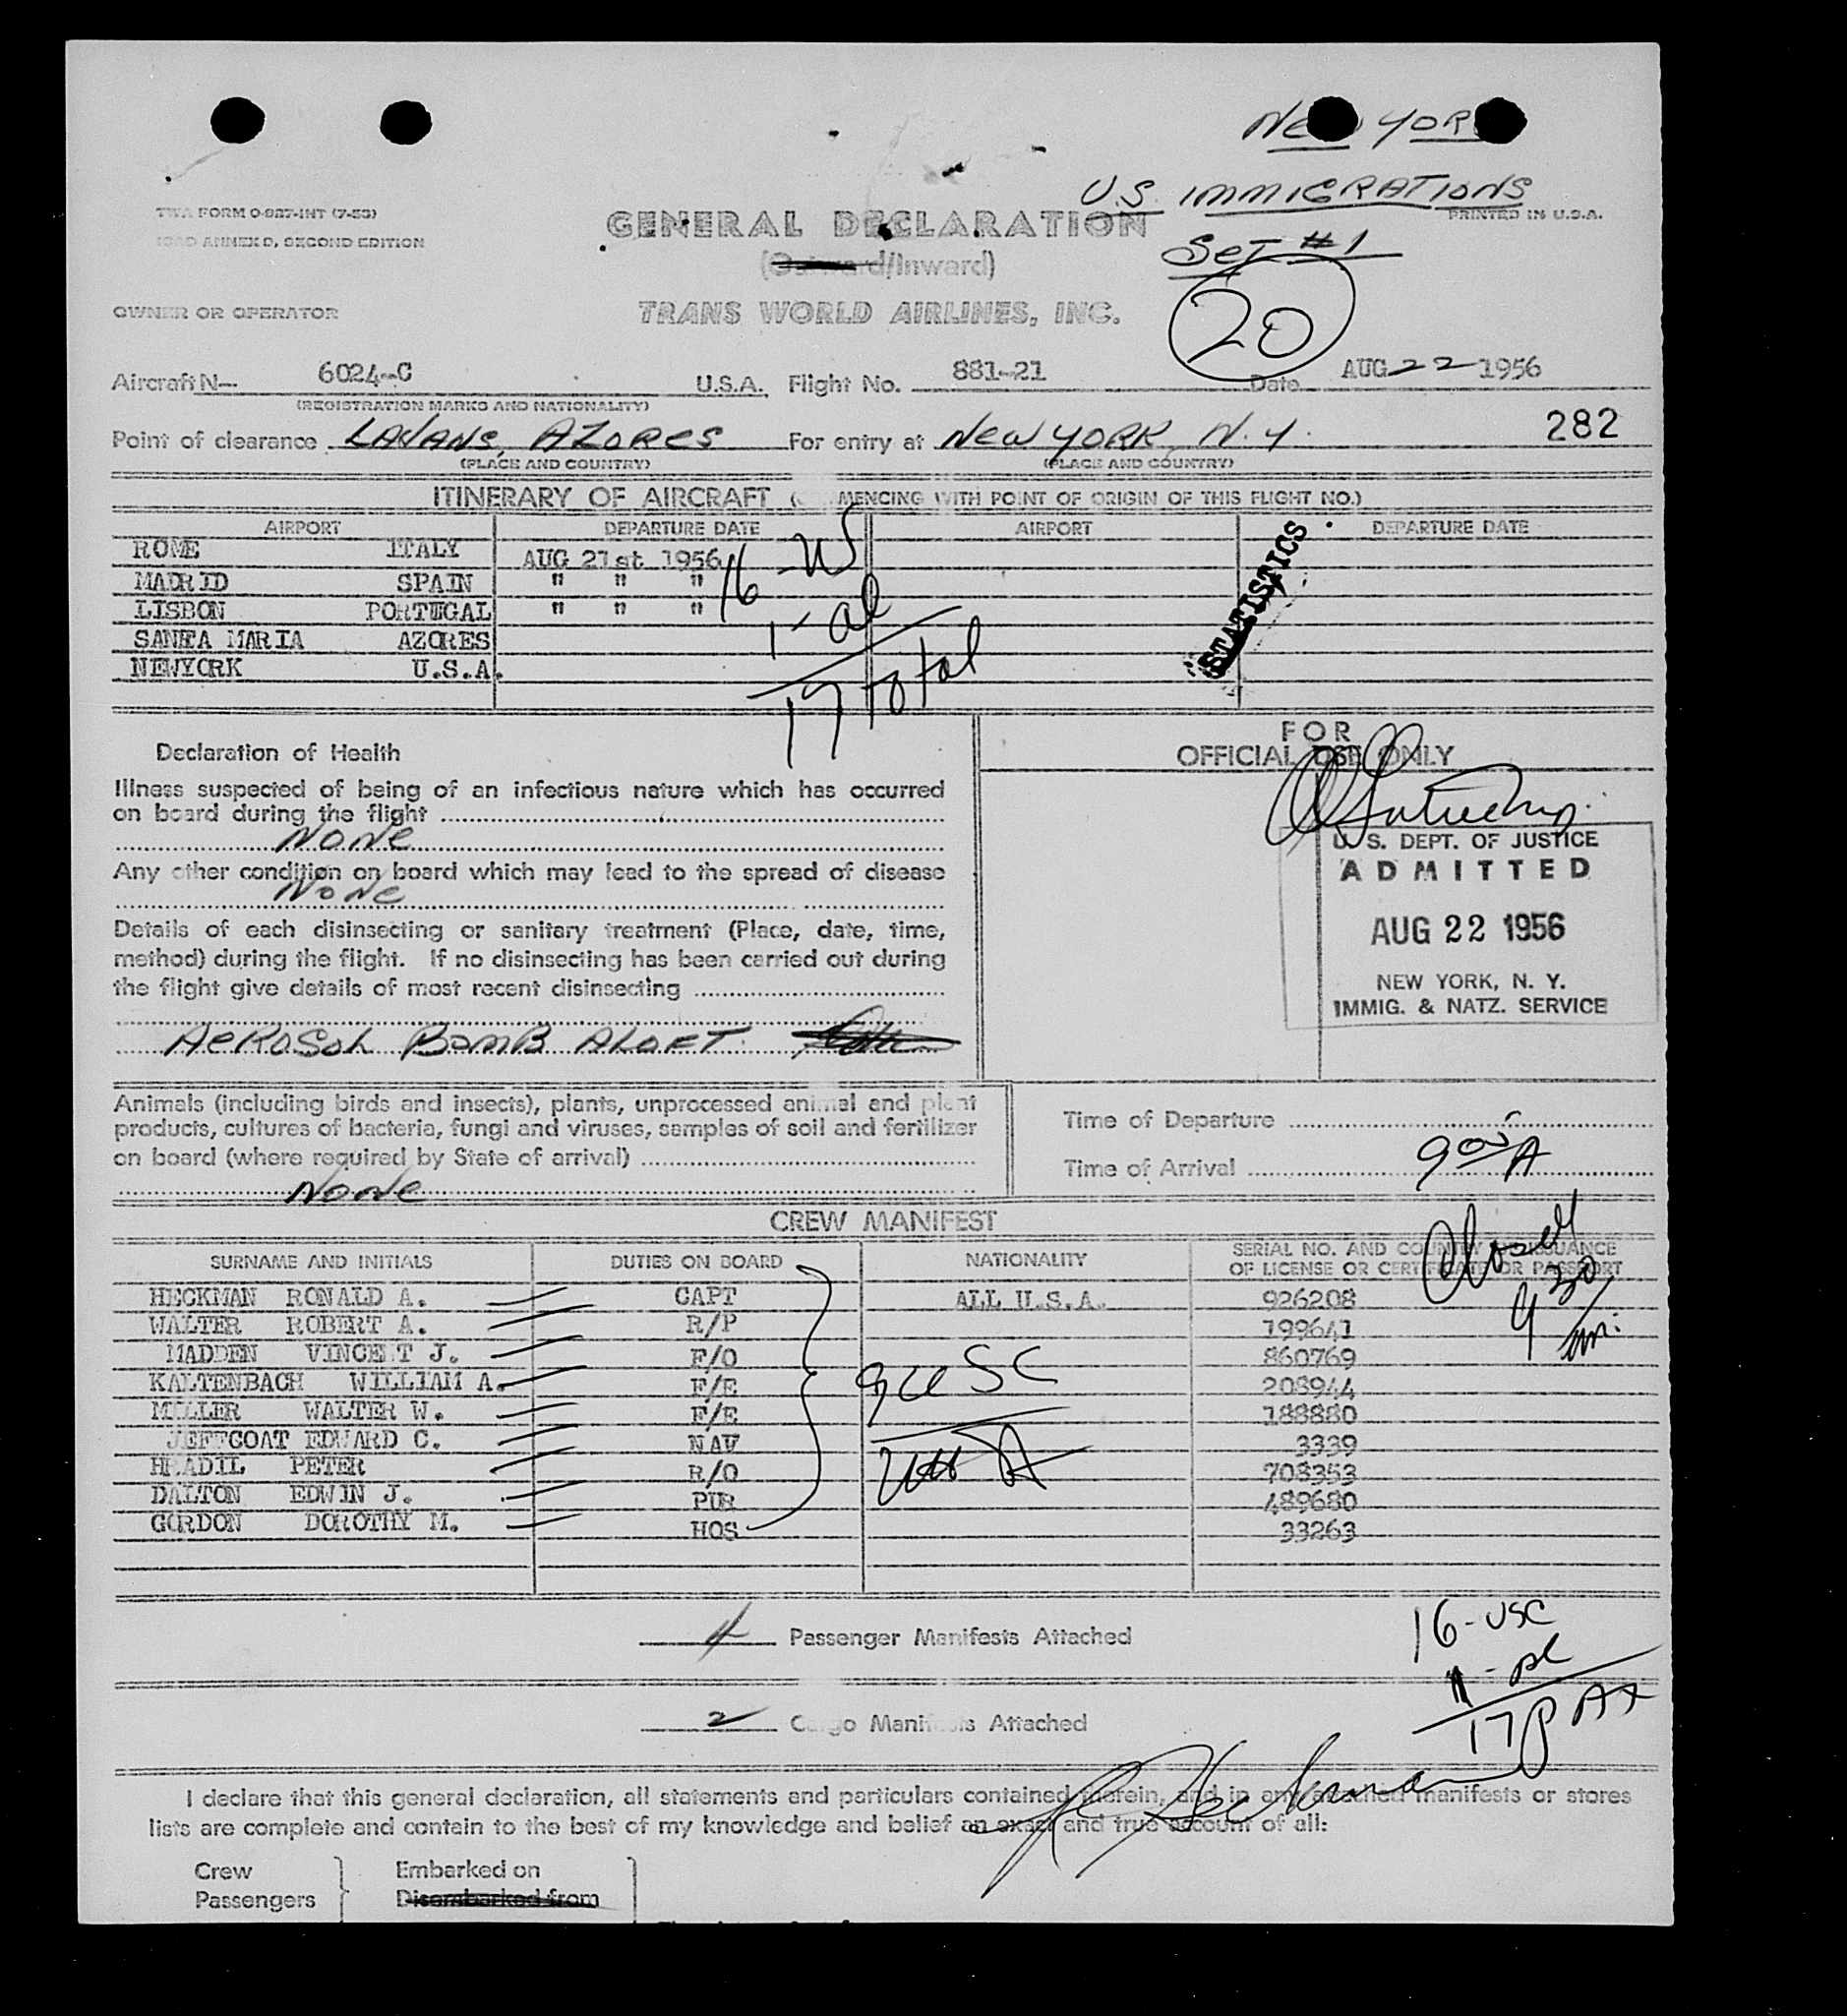 NEW YORK
U.S. IMMIGRATIONS
TWA FORM O-927-INT (7-53)
PRINTED IN U.S.A.
ICAO ANNEX D, SECOND EDITION
GENERAL DECLARATION
SET #1
(Outward/Inward)
20
OWNER OR OPERATOR
TRANS WORLD AIRLINES, INC.
Aircraft N— 6024-C U.S.A. Flight No. 881-21 Date AUG 22 1956
(REGISTRATION MARKS AND NATIONALITY)
Point of clearance LAJANS, AZORES For entry at NEW YORK, N.Y. 282
(PLACE AND COUNTRY) (PLACE AND COUNTRY)
ITINERARY OF AIRCRAFT (COMMENCING WITH POINT OF ORIGIN OF THIS FLIGHT NO.)
AIRPORT DEPARTURE DATE AIRPORT DEPARTURE DATE
ROME ITALY AUG 21st 1956
MADRID SPAIN " " "
LISBON PORTUGAL " " "
SANTA MARIA AZORES
NEWYORK U.S.A.
16
1 - al
17 total
STATISTICS
Declaration of Health
FOR
OFFICIAL USE ONLY
Illness suspected of being of an infectious nature which has occurred
on board during the flight
NONE
Any other condition on board which may lead to the spread of disease
NONE
Details of each disinsecting or sanitary treatment (Place, date, time,
method) during the flight. If no disinsecting has been carried out during
the flight give details of most recent disinsecting
AEROSOL BOMB ALOFT
U. S. DEPT. OF JUSTICE
ADMITTED
AUG 22 1956
NEW YORK, N. Y.
IMMIG. & NATZ. SERVICE
Animals (including birds and insects), plants, unprocessed animal and plant
products, cultures of bacteria, fungi and viruses, samples of soil and fertilizer
on board (where required by State of arrival)
NONE
Time of Departure
Time of Arrival 905 A
CREW MANIFEST
SURNAME AND INITIALS DUTIES ON BOARD NATIONALITY SERIAL NO. AND COUNTRY OF ISSUANCE
OF LICENSE OR CERTIFICATE OR PASSPORT
HECKMAN RONALD A. CAPT ALL U.S.A. 926208
WALTER ROBERT A. R/P 199641
MADDEN VINCE T J. F/O 860769
KALTENBACH WILLIAM A. F/E 208944
MILLER WALTER W. F/E 188880
JEFFCOAT EDWARD C. NAV 3339
HRADIL PETER R/O 708353
DALTON EDWIN J. PUR 489680
GORDON DOROTHY M. HOS 33263
9 USC
Closed
9 30
am.
4 Passenger Manifests Attached
16-USC
1 - al
17 PAX
2 Cargo Manifests Attached
R Heckman
I declare that this general declaration, all statements and particulars contained therein, and in any attached manifests or stores
lists are complete and contain to the best of my knowledge and belief an exact and true account of all:
Crew Embarked on
Passengers Disembarked from